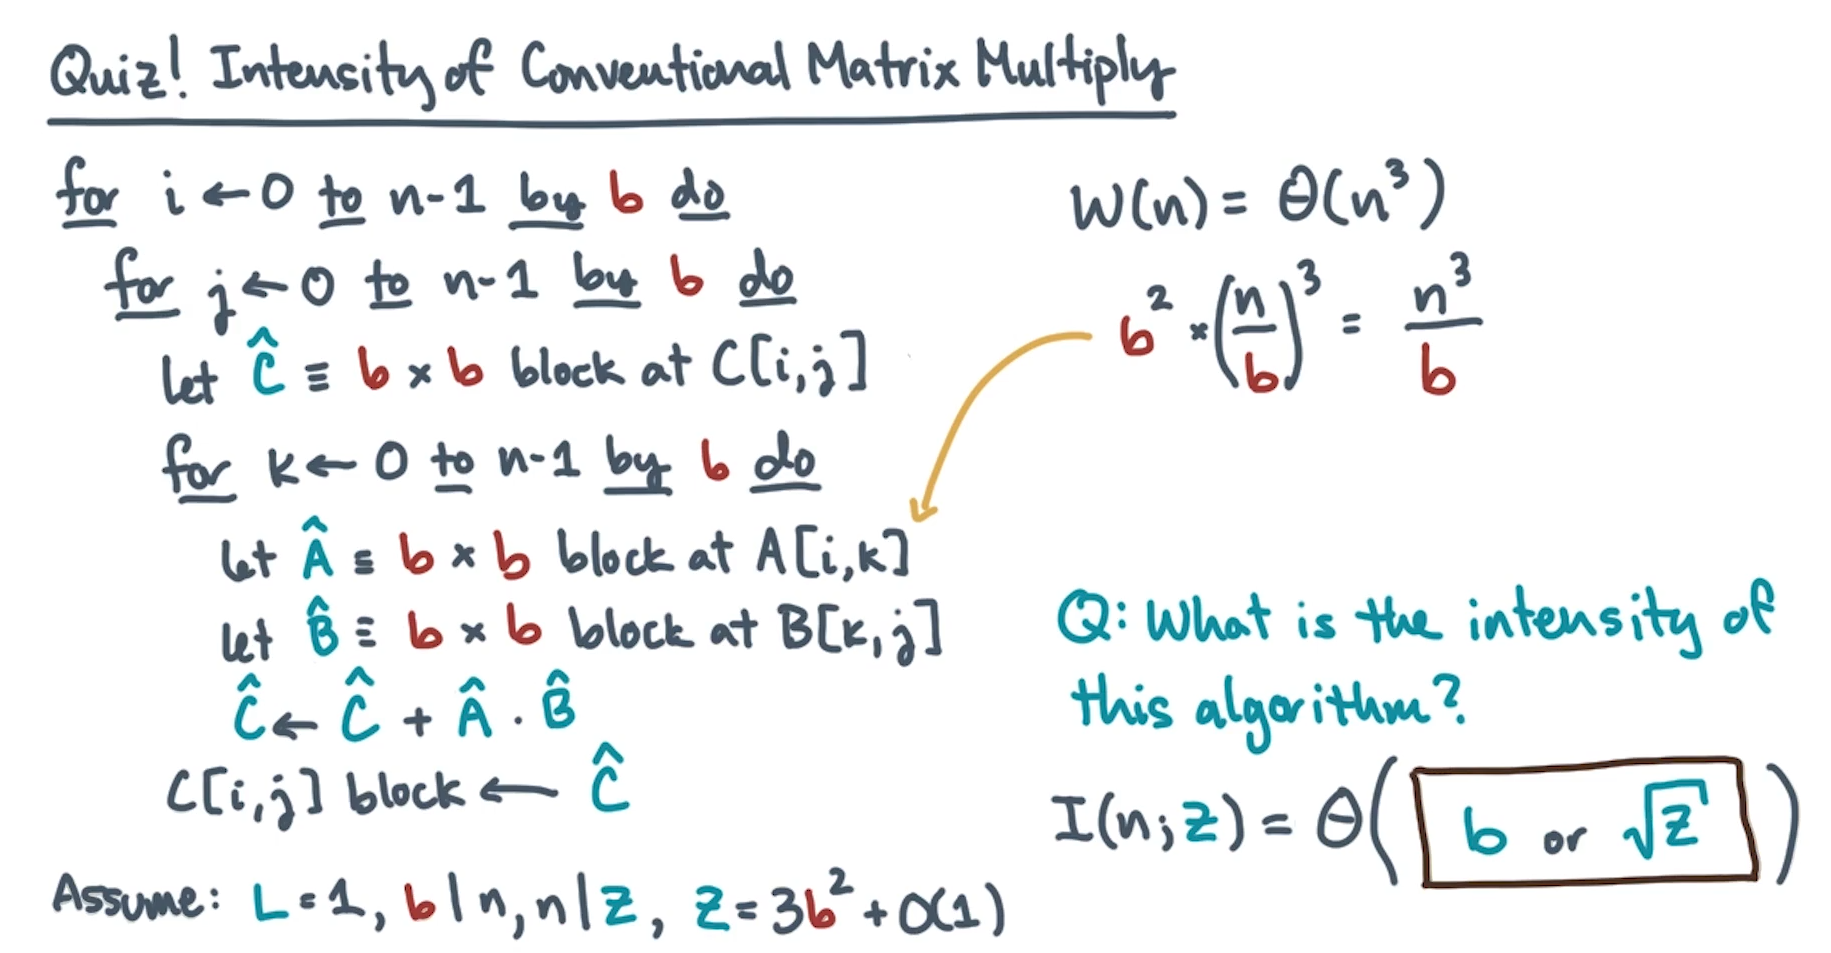 Quiz! Intensity of Conventional Matrix Multiply
for i ← 0 to n-1 by b do
for j ← 0 to n-1 by b do
let Ĉ ≡ b × b block at C[i,j]
for k ← 0 to n-1 by b do
let Â ≡ b × b block at A[i,k]
let B̂ ≡ b × b block at B[k,j]
Ĉ ← Ĉ + Â · B̂
C[i,j] block ← Ĉ
Assume: L = 1, b | n, n | Z, Z = 3b² + O(1)
W(n) = Θ(n³)
b² × (n/b)³ = n³/b
Q: What is the intensity of
this algorithm?
I(n; Z) = Θ( b or √Z )